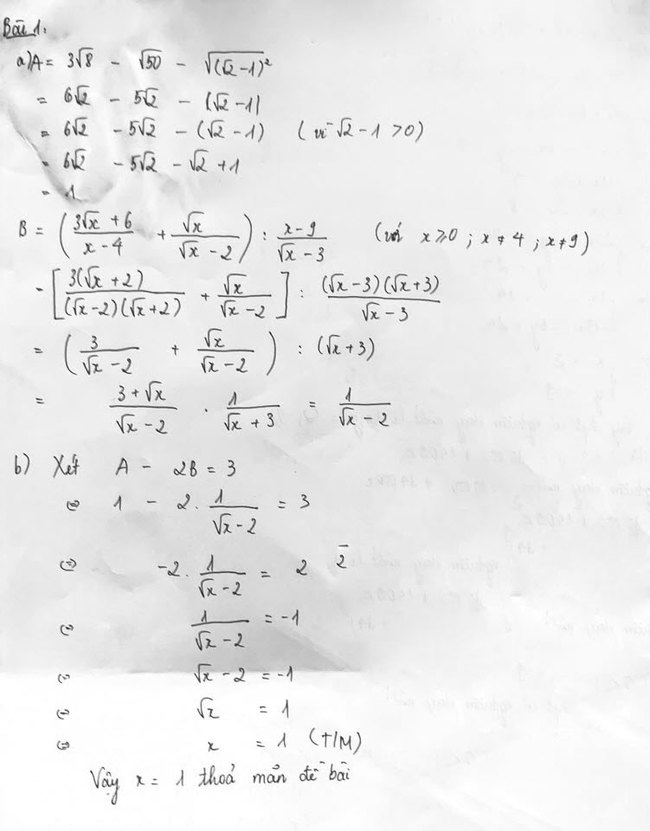 Bài 1:
a) A = 3√8 - √50 - √(√2-1)²
= 6√2 - 5√2 - |√2-1|
= 6√2 - 5√2 - (√2-1) (vì √2-1 >0)
= 6√2 - 5√2 - √2 +1
= 1
B = ( (3√x + 6)/(x-4) + √x/(√x-2) ) : (x-9)/(√x-3) (với x≥0 ; x≠4 ; x≠9)
= [ 3(√x+2)/((√x-2)(√x+2)) + √x/(√x-2) ] : (√x-3)(√x+3)/(√x-3)
= ( 3/(√x-2) + √x/(√x-2) ) : (√x+3)
= (3+√x)/(√x-2) . 1/(√x+3) = 1/(√x-2)
b) Xét A - 2B = 3
⇔ 1 - 2. 1/(√x-2) = 3
⇔ -2. 1/(√x-2) = 2
⇔ 1/(√x-2) = -1
⇔ √x-2 = -1
⇔ √x = 1
⇔ x = 1 (T/M)
Vậy x = 1 thoả mãn đề bài